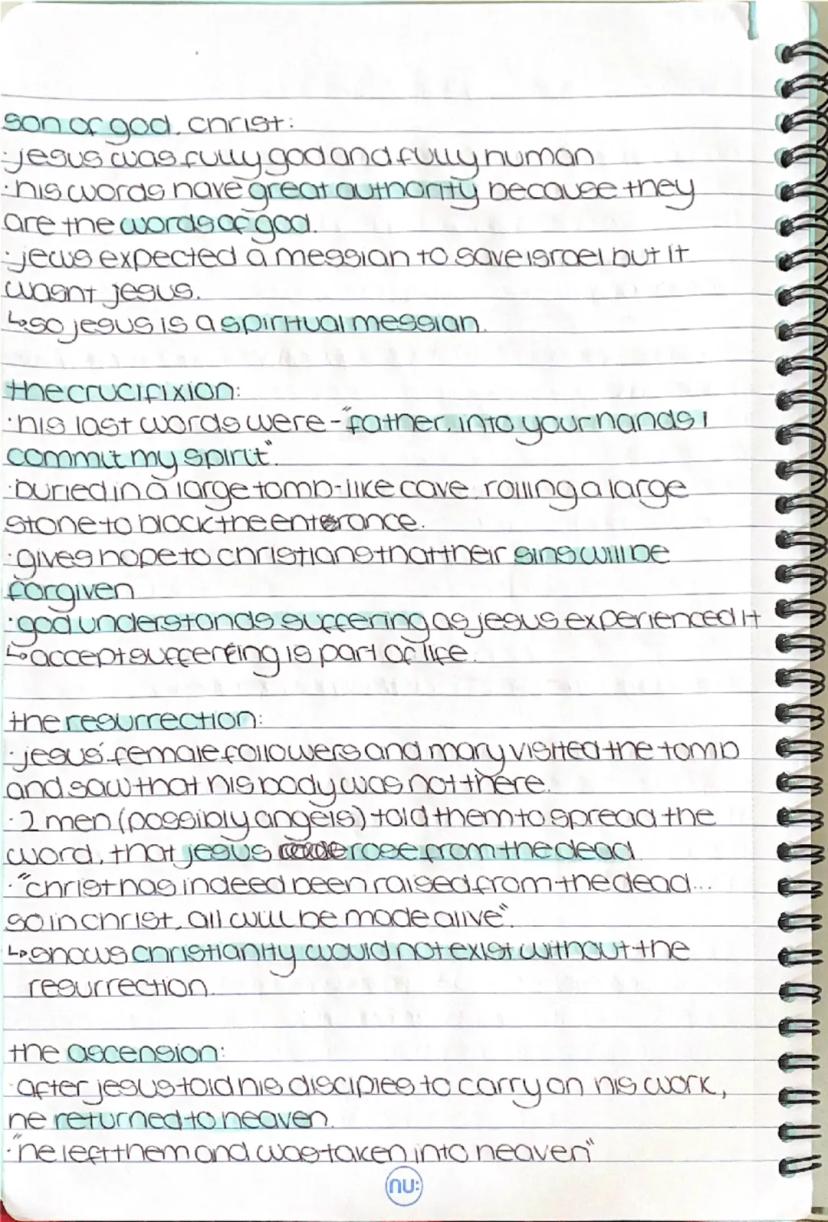 son of god, christ:
·jesus was fully god and fully human
·his words have great authority because they
are the words of god.
·jews expected a messiah to save israel but it
wasnt jesus.
↳so jesus is a spiritual messiah.
the crucifixion:
·his last words were - "father, into your hands i
commit my spirit".
·buried in a large tomb-like cave, rolling a large
stone to block the enterance.
·gives hope to christians that their sins will be
forgiven
·god understands suffering as jesus experienced it
↳accept suffering is part of life.
the resurrection:
·jesus' female followers and mary visited the tomb
and saw that his body was not there.
·2 men (possibly angels) told them to spread the
word, that jesus rose from the dead.
·"christ has indeed been raised from the dead...
so in christ, all will be made alive".
↳shows christianity would not exist without the
resurrection.
the ascension:
·after jesus told his disciples to carry on his work,
he returned to heaven.
·"he left them and was taken into heaven"
nu: